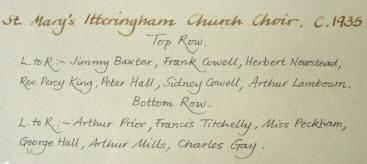 St. Mary's Itteringham Church Choir. C.1935
Top Row.
L. to R:~ Jimmy Baxter, Frank Cowell, Herbert Newstead,
Rev. Percy King, Peter Hall, Sidney Cowell, Arthur Lambourn.
Bottom Row.
L. to R:~ Arthur Prior, Francis Titchelly, Miss Peckham,
George Hall, Arthur Mills, Charles Gay.